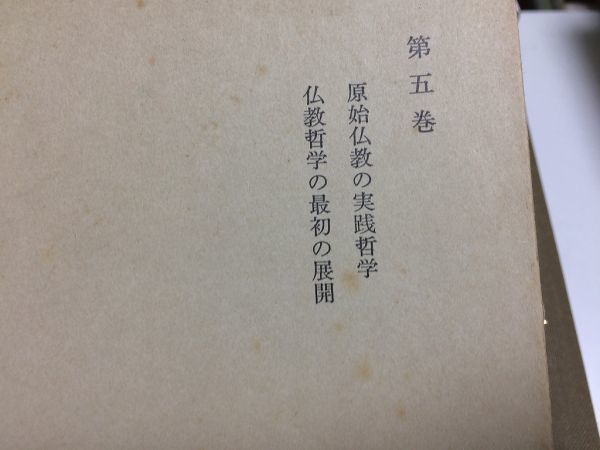 第五巻
原始仏教の実践哲学
仏教哲学の最初の展開